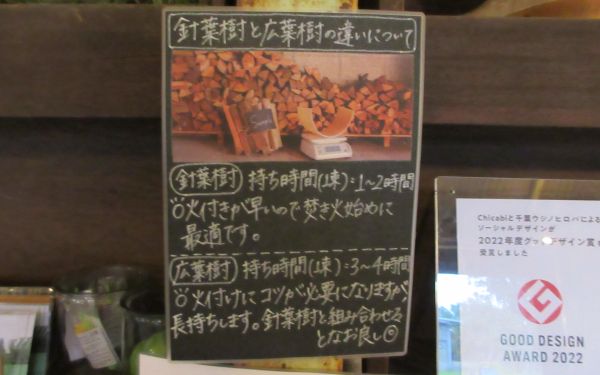 針葉樹と広葉樹の違いについて
針葉樹 持ち時間(1束):1〜2時間
○火付きが早いので焚き火始めに
最適です。
広葉樹 持ち時間(1束):3〜4時間
○火付けにコツが必要になりますが、
長持ちします。針葉樹と組み合わせる
となお良し
Chicabiと千葉ウシノヒロバによる
ソーシャルデザインが
2022年度グッドデザイン賞を
受賞しました
GOOD DESIGN
AWARD 2022